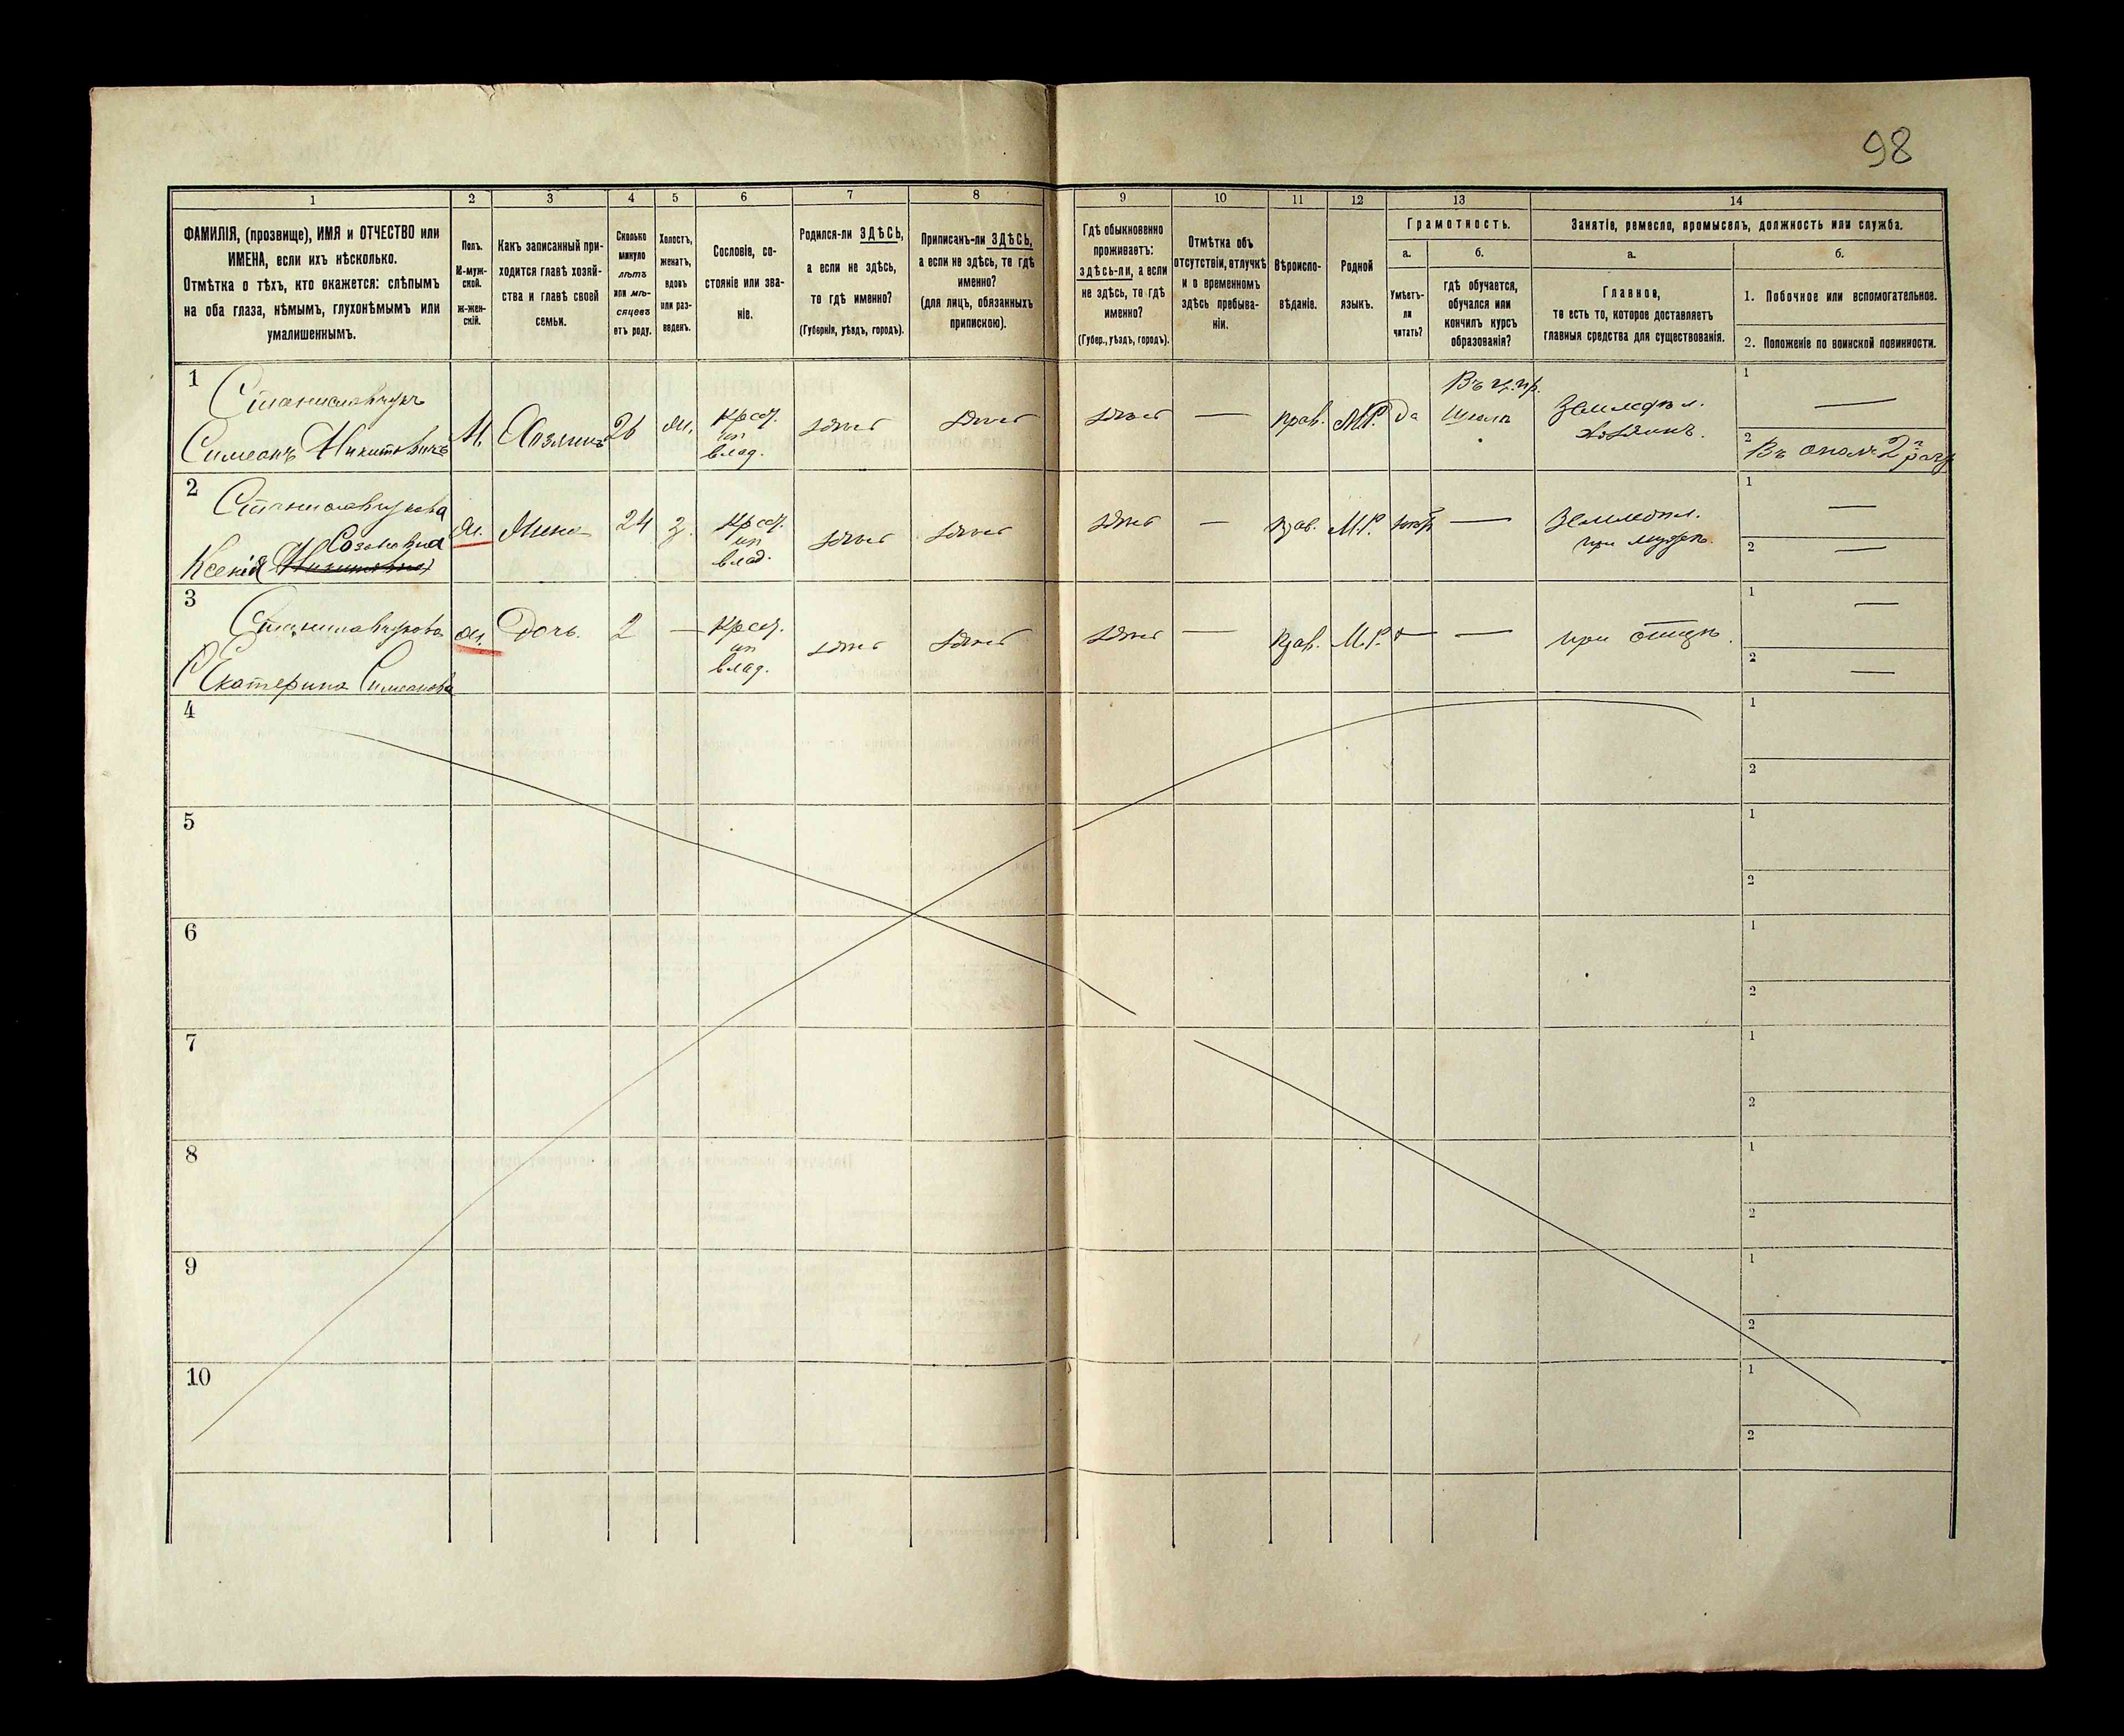 98
1
2
3
4
5
6
7
8
9
10
11
12
13
14
ФАМИЛІЯ, (прозвище), ИМЯ и ОТЧЕСТВО или
ИМЕНА, если ихъ нѣсколько.
Отмѣтка о тѣхъ, кто окажется: слѣпымъ
на оба глаза, нѣмымъ, глухонѣмымъ или
умалишеннымъ.
Полъ.
М-муж-
ской.
Ж-жен-
скій.
Какъ записанный при-
ходится главѣ хозяй-
ства и главѣ своей
семьи.
Сколько
минуло
лѣтъ
или мѣ-
сяцевъ
отъ роду.
Холостъ,
женатъ,
вдовъ
или раз-
веденъ.
Сословіе, со-
стояніе или зва-
ніе.
Родился-ли ЗДѢСЬ,
а если не здѣсь,
то гдѣ именно?
(Губернія, уѣздъ, городъ).
Приписанъ-ли ЗДѢСЬ,
а если не здѣсь, то гдѣ
именно?
(для лицъ, обязанныхъ
припискою).
Гдѣ обыкновенно
проживаетъ:
здѣсь-ли, а если
не здѣсь, то гдѣ
именно?
(Губер., уѣздъ, городъ).
Отмѣтка объ
отсутствіи, отлучкѣ
и о временномъ
здѣсь пребыва-
ніи.
Вѣроиспо-
вѣданіе.
Родной
языкъ.
Грамотность.
а.
Умѣетъ-
ли
читать?
б.
гдѣ обучается,
обучался или
кончилъ курсъ
образованія?
Занятіе, ремесло, промыселъ, должность или служба.
а.
Главное,
то есть то, которое доставляетъ
главныя средства для существованія.
б.
1. Побочное или вспомогательное.
2. Положеніе по воинской повинности.
1
Станиславчукъ
Симеонъ Никитовичъ
М.
Хозяинъ
26
ж.
Крест.
из
влад.
здѣсь
здѣсь
здѣсь
—
прав.
М.Р.
Да
Въ ц.пр.
Школѣ
Земледѣл.
хозяинъ.
1
—
2
Въ ополч. 2 разр
2
Станиславчукова
Созоновна
Ксенія
ж.
Жена
24
з.
Крест.
из
влад.
здѣсь
здѣсь
здѣсь
—
прав.
М.Р.
нѣтъ
—
Земледѣл.
при мужѣ.
1
—
2
—
3
Станиславчукова
Екатерина Симеонова
ж.
Дочь.
2
—
Крест.
из
влад.
здѣсь
здѣсь
здѣсь
—
прав.
М.Р.
—
—
при отцѣ.
1
—
2
—
4
1
2
5
1
2
6
1
2
7
1
2
8
1
2
9
1
2
10
1
2